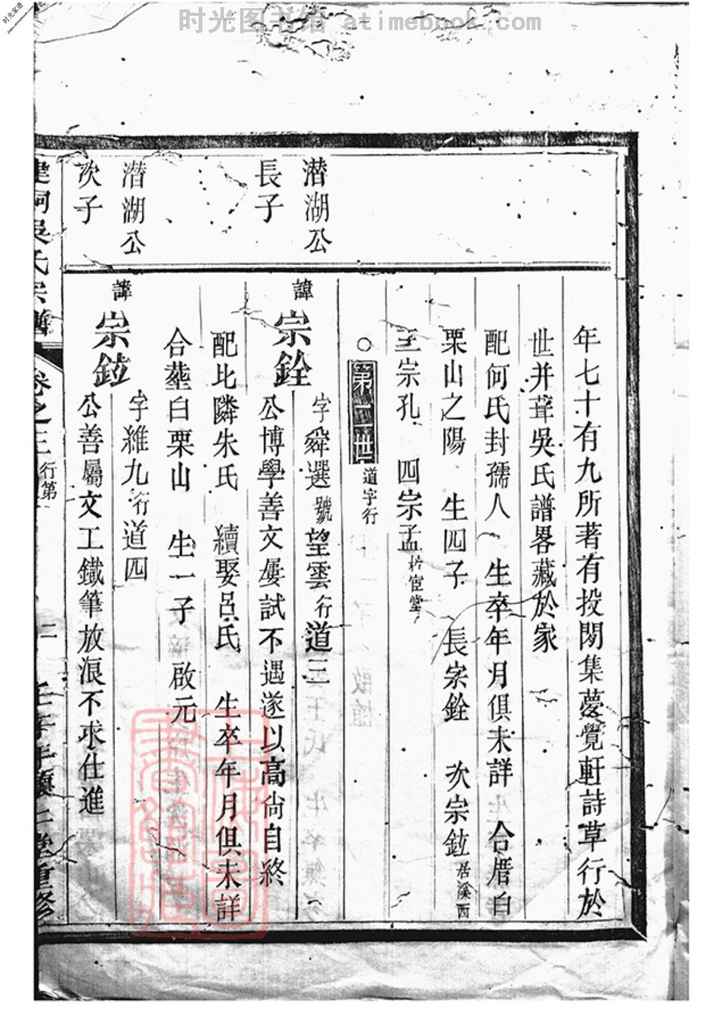 时光图书馆 atimebook.com
年七十有九所著有投閒集夢覺軒詩草行於
世并葺吳氏譜畧藏於家
配何氏封孺人 生卒年月俱未詳 合厝白
栗山之陽 生四子 長宗銓 次宗鉝居溪西
三宗孔 四宗孟
○第二世道字行
潛湖公
長子
諱宗銓 字舜選號望雲行道三
公博學善文屢試不遇遂以高尙自終
配比隣朱氏 續娶呂氏 生卒年月俱未詳
合塟白栗山 生一子 啟元
潛湖公
次子
諱宗鉝 字維九行道四
公善屬文工鐵筆放浪不求仕進
吳氏宗譜 卷之三 行第 二 重修